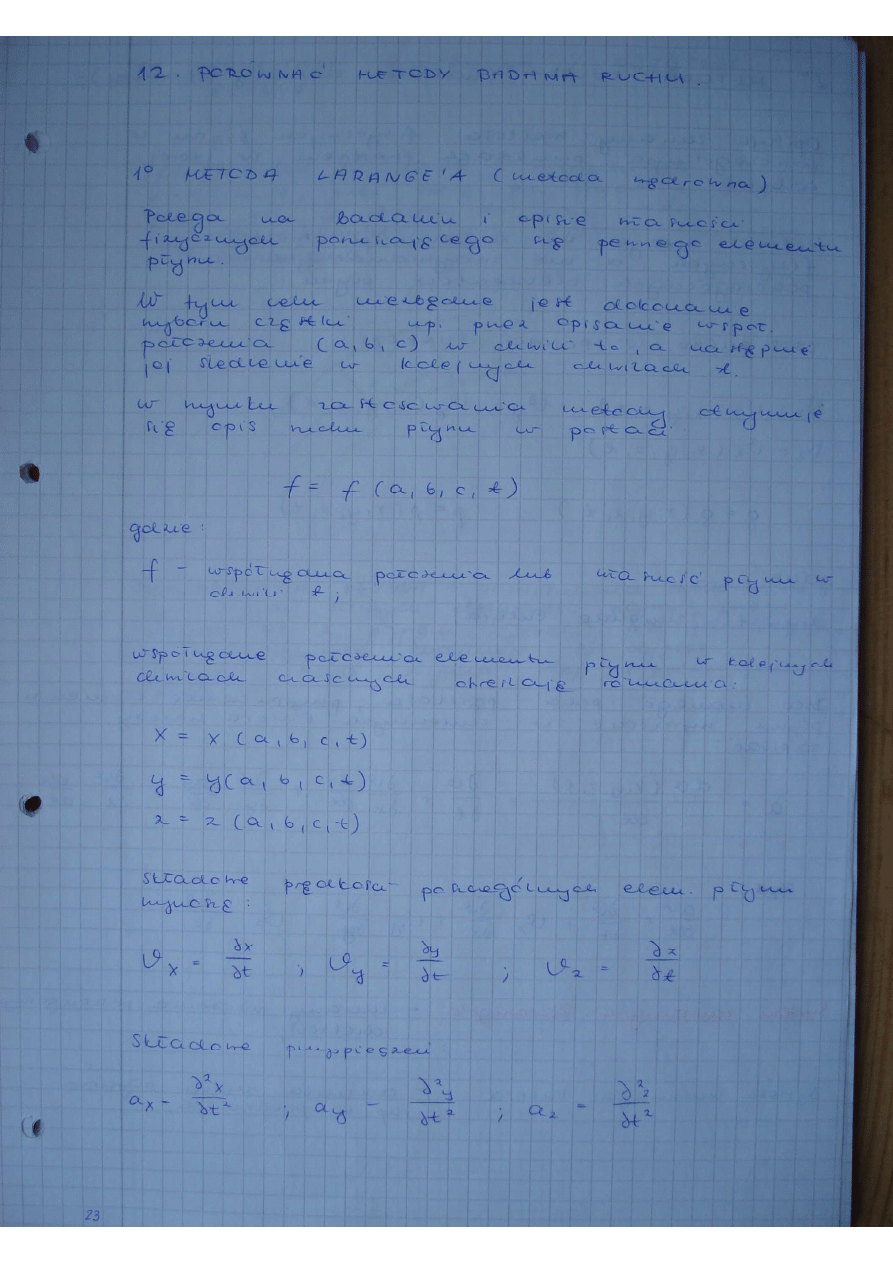 12. PORÓWNAĆ METODY BADANIA RUCHU.
1° METODA LARANGE'A (metoda wędrowna)
Polega na badaniu i opisie własności
fizycznych poruszającego się pewnego elementu
płynu.
W tym celu niezbędne jest dokonanie
wyboru cząstki np. przez opisanie współ.
położenia (a, b, c) w chwili to, a następnie
jej śledzenie w kolejnych chwilach t.
W wyniku zastosowania metody otrzymuje
się opis ruchu płynu w postaci
f = f (a, b, c, t)
gdzie:
f - współrzędna położenia lub własność płynu w
chwili t;
współrzędne położenia elementu płynu w kolejnych
chwilach czasowych określają równania:
x = x (a, b, c, t)
y = y(a, b, c, t)
z = z (a, b, c, t)
Składowe prędkości poszczególnych elem. płynu
wynoszą:
υx = ∂x/∂t ; υy = ∂y/∂t ; υz = ∂z/∂t
Składowe przyspieszeń
ax - ∂²x/∂t² ; ay - ∂²y/∂t² ; az = ∂²z/∂t²
23